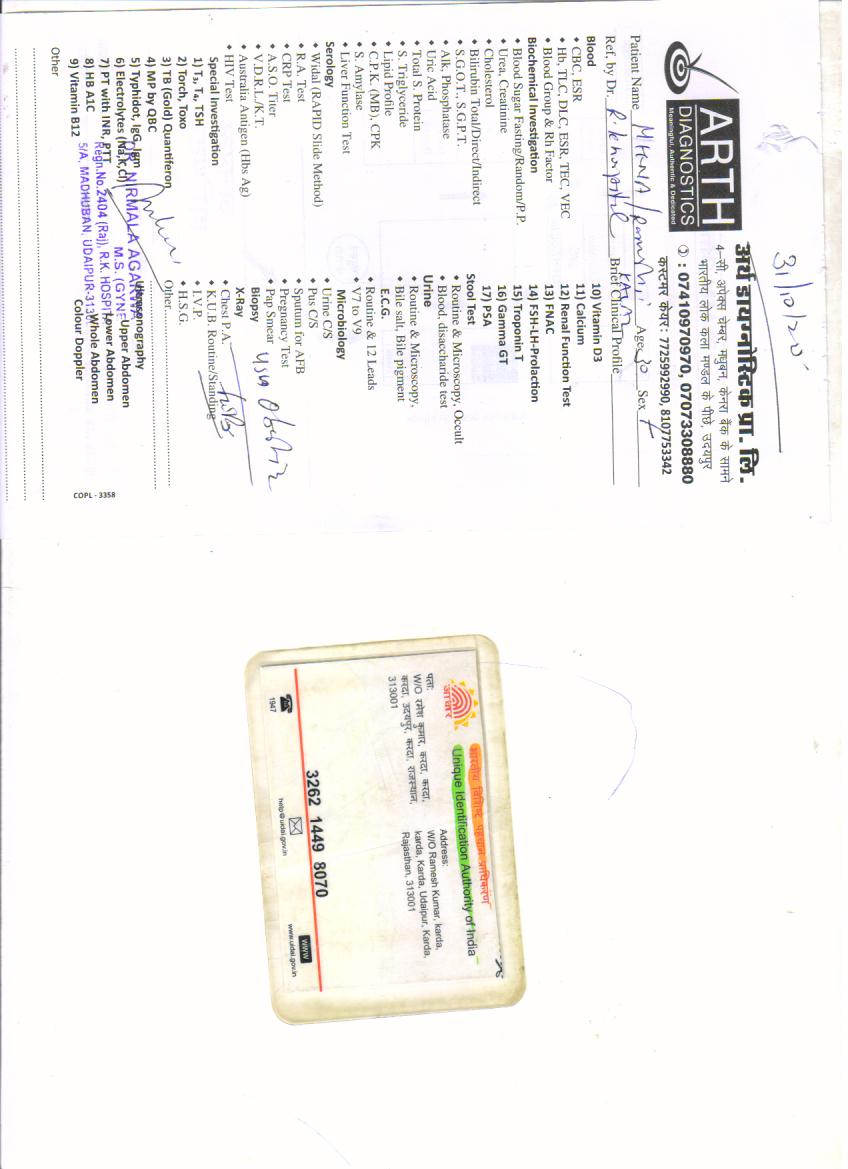 31/10/20
ARTH
DIAGNOSTICS
Meaningful, Authentic & Dedicated
अर्थ डायग्नोस्टिक प्रा. लि.
4-सी, अपेक्स चेम्बर, मधुबन, केनरा बैंक के सामने
भारतीय लोक कला मण्डल के पीछे, उदयपुर
: 07410970970, 07073308880
कस्टमर केयर : 7725992990, 8107753342
Patient Name Age 30 Sex F
Ref. by Dr. Brief Clinical Profile
Blood
• CBC, ESR
• Hb, TLC, DLC, ESR, TEC, VEC
• Blood Group & Rh Factor
Biochemical Investigation
• Blood Sugar Fasting/Random/P.P.
• Urea, Creatinine
• Cholesterol
• Bilirubin Total/Direct/Indirect
• S.G.O.T., S.G.P.T.
• Alk. Phosphatase
• Uric Acid
• Total S. Protein
• S. Triglyceride
• Lipid Profile
• C.P.K. (MB), CPK
• S. Amylase
• Liver Function Test
Serology
• Widal (RAPID Slide Method)
• R.A. Test
• CRP Test
• A.S.O. Tier
• V.D.R.L./K.T.
• Australia Antigen (Hbs Ag)
• HIV Test
Special Investigation
1) T₃, T₄, TSH
2) Torch, Toxo
3) TB (Gold) Quantiferon
4) MP by QBC
5) Typhidot, IgG, Igm
6) Electrolytes (Na,K,cl)
7) PT with INR, PTT
8) HB A1C
9) Vitamin B12
Other
10) Vitamin D3
11) Calcium
12) Renal Function Test
13) FNAC
14) FSH-LH-Prolaction
15) Troponin T
16) Gamma GT
17) PSA
Stool Test
• Routine & Microscopy, Occult
• Blood, disaccharide test
Urine
• Routine & Microscopy,
• Bile salt, Bile pigment
E.C.G.
• Routine & 12 Leads
• V7 to V9
Microbiology
• Urine C/S
• Pus C/S
• Sputum for AFB
• Pregnancy Test
• Pap Smear
Biopsy
X-Ray
• Chest P.A.
• K.U.B. Routine/Standing
• I.V.P.
• H.S.G.
Other
Ultrasonography
Upper Abdomen
Lower Abdomen
Whole Abdomen
Colour Doppler
NIRMALA AGARWAL
M.S. (GYNE
Regn.No.2404 (Raj), R.K. HOSPI
5/A, MADHUBAN, UDAIPUR-313
COPL - 3358
आधार
भारतीय विशिष्ट पहचान प्राधिकरण
Unique Identification Authority of India
पता:
W/O रमेश कुमार, करदा, करदा,
करदा, उदयपुर, करदा, राजस्थान,
313001
Address:
W/O Ramesh Kumar, karda,
karda, Karda, Udaipur, Karda,
Rajasthan, 313001
3262 1449 8070
1947
help@uidai.gov.in
www
www.uidai.gov.in